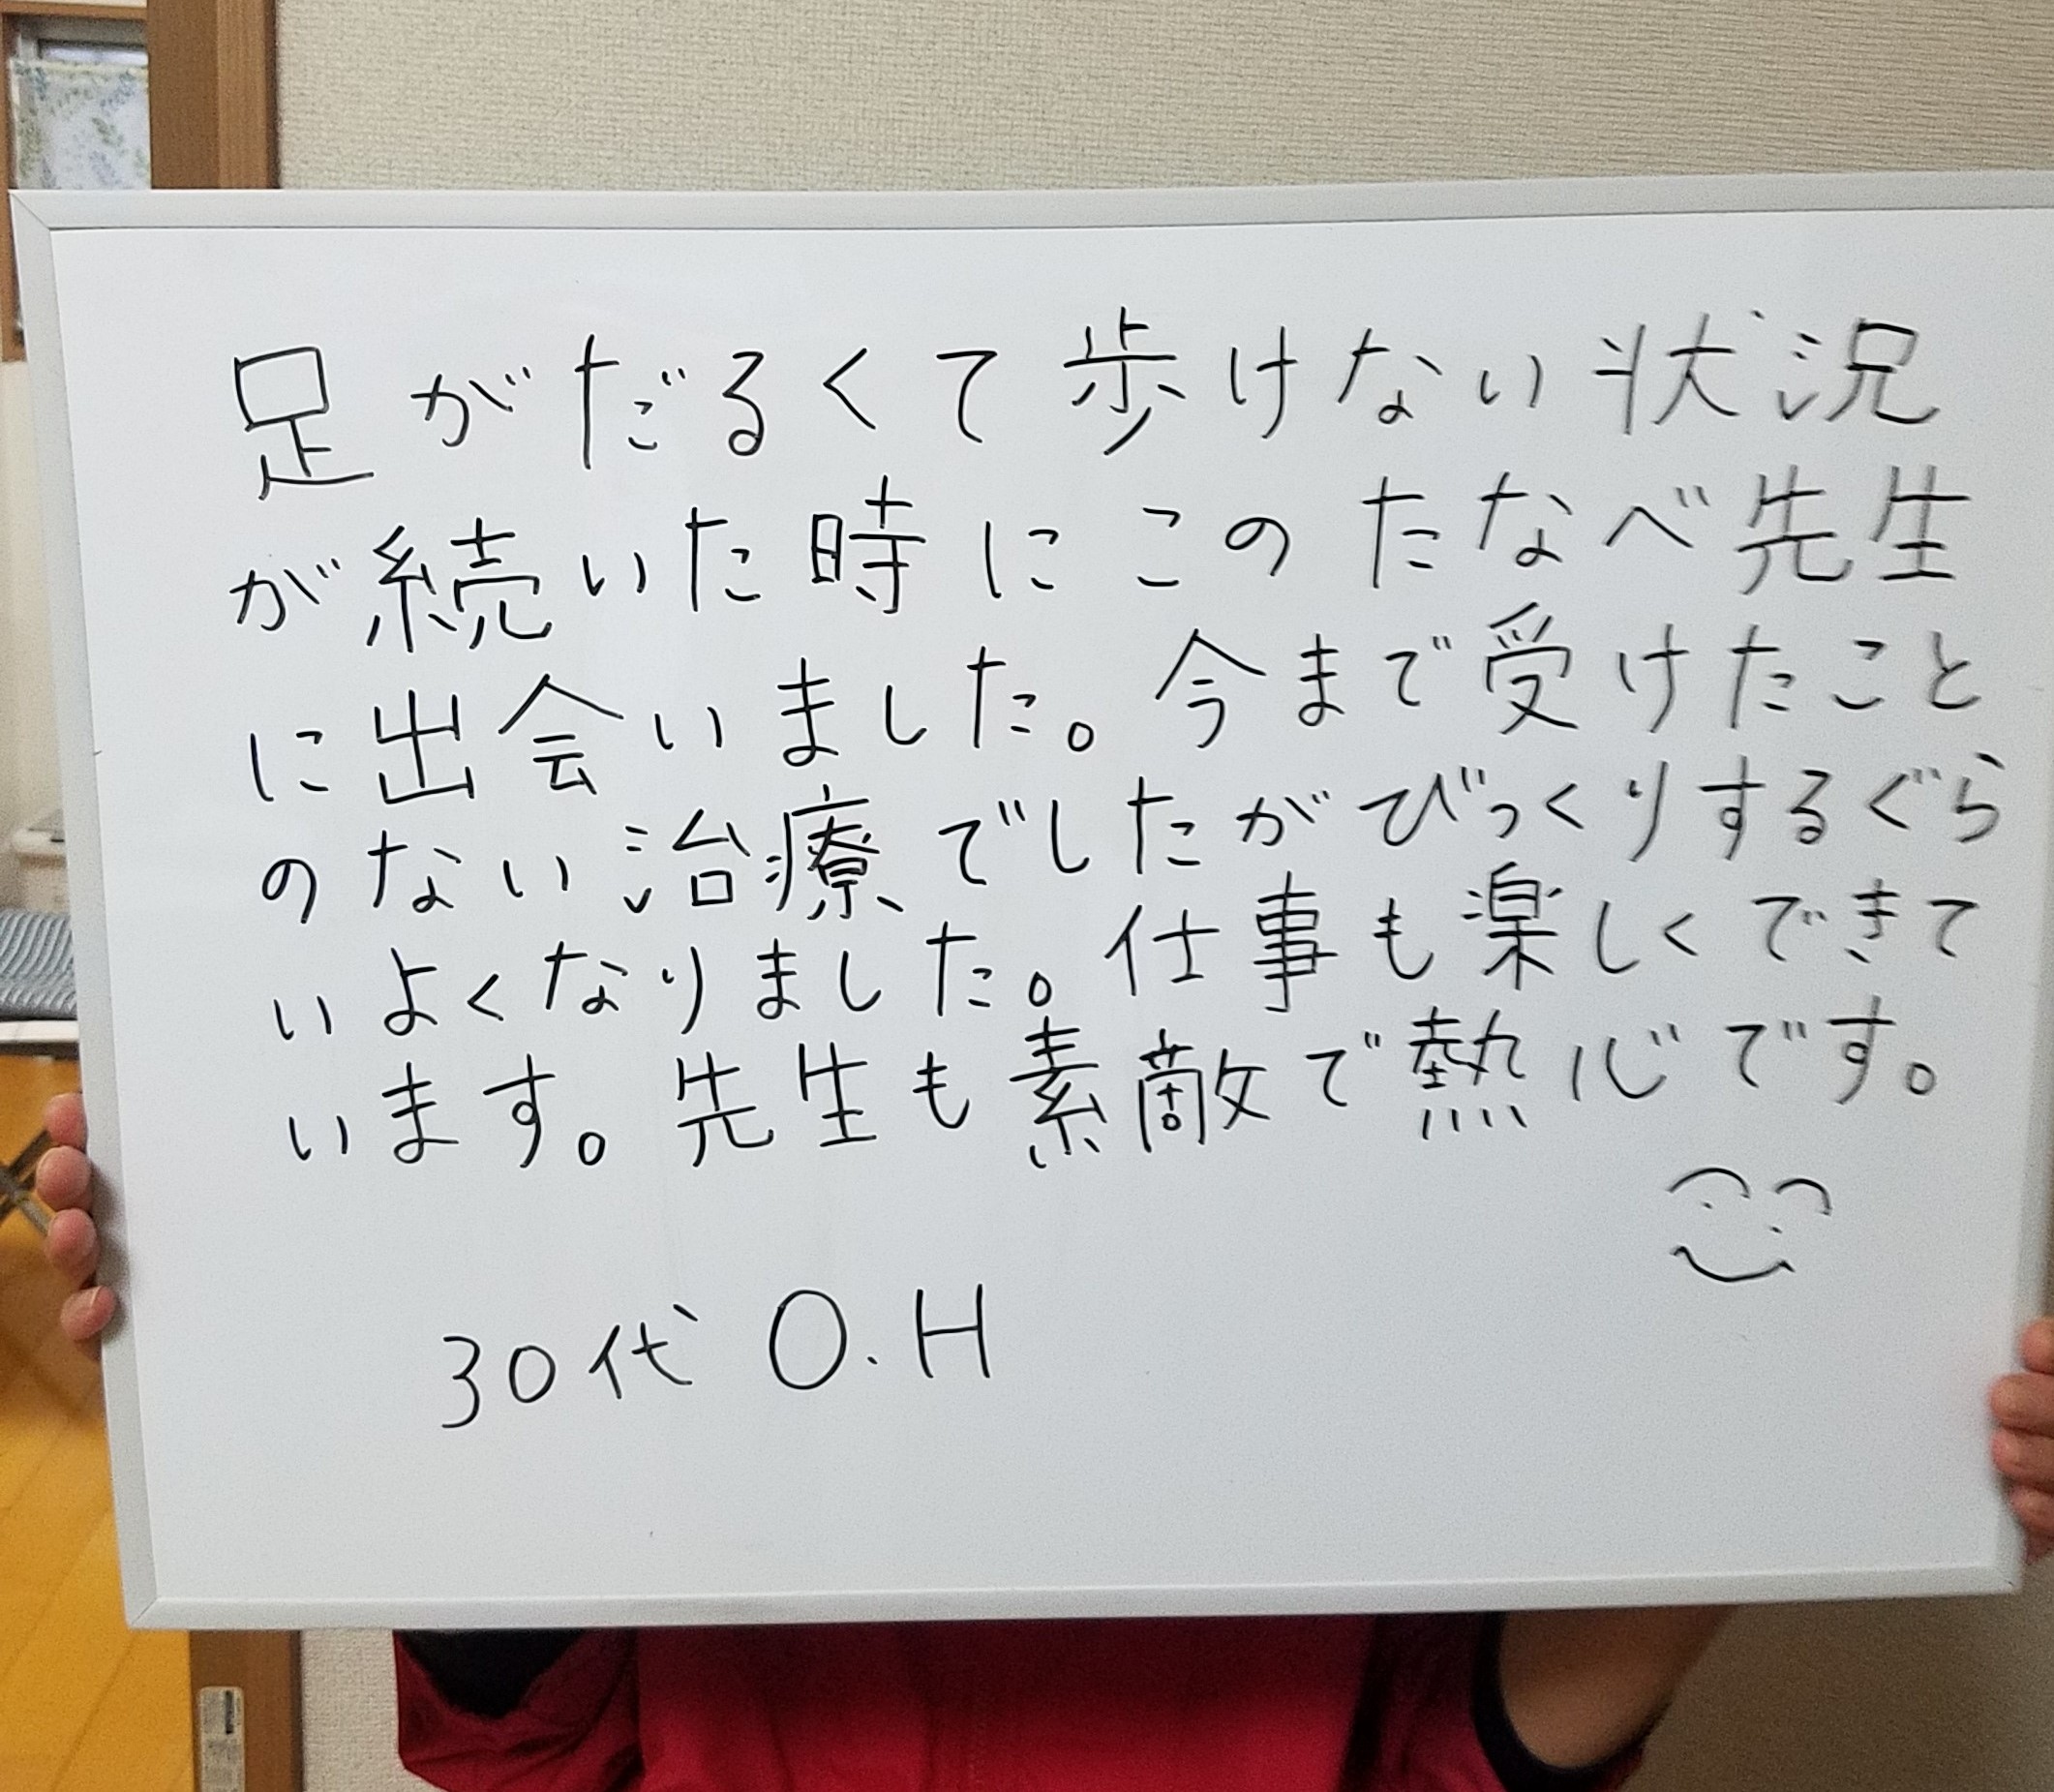 足がだるくて歩けない状況
が続いた時にこのたなべ先生
に出会いました。今まで受けたこと
のない治療でしたがびっくりするぐら
いよくなりました。仕事も楽しくできて
います。先生も素敵で熱心です。
30代 O.H